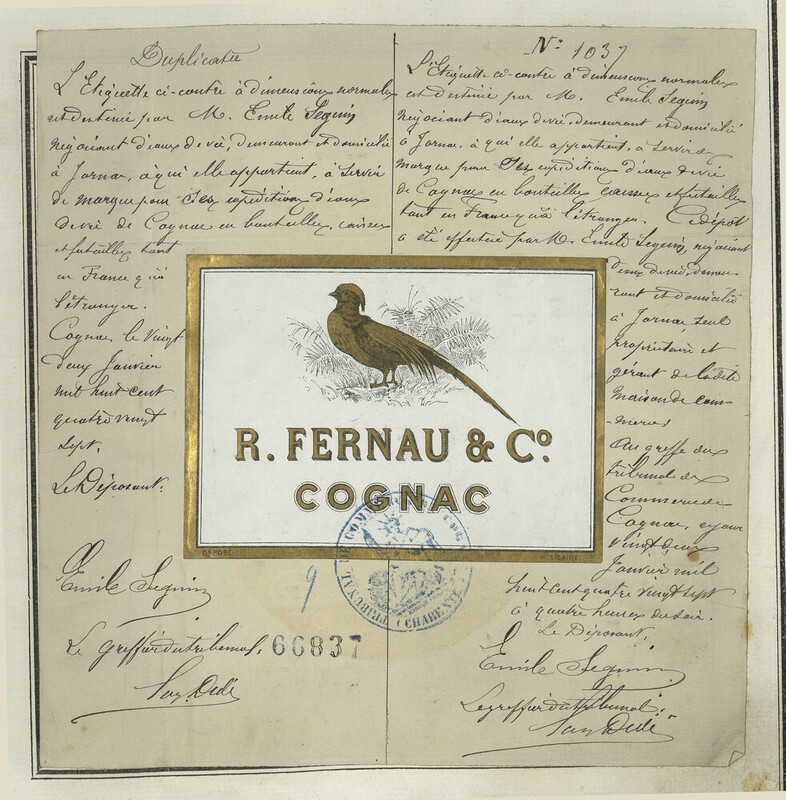 Duplicata
L'Etiquette ci-contre à dimensions normales
est destinée par M. Emile Seguin
négociant d'eaux de vie, demeurant et domicilié
à Jarnac, à qui elle appartient, à servir
de marque pour ses expéditions d'eaux
de vie de Cognac en bouteilles, caisses
et futailles tant
en France qu'à
l'étranger.
Cognac, le vingt
deux Janvier
mil huit cent
quatre vingt
sept.
Le Déposant:
Emile Seguin
Le greffier du tribunal,
N° 1037
L'Etiquette ci-contre à dimensions normales
est destinée par M. Emile Seguin
négociant d'eaux de vie, demeurant et domicilié
à Jarnac, à qui elle appartient, à servir de
marque pour ses expéditions d'eaux de vie
de Cognac en bouteilles caisses et futailles
tant en France qu'à l'étranger. Ce dépôt
a été effectué par M. Emile Seguin, négociant
d'eaux de vie, demeu-
rant et domicilié
à Jarnac, seul
propriétaire et
gérant de ladite
maison de com-
merce
Au greffe du
tribunal de
Commerce de
Cognac, ce jour
vingt deux
Janvier mil
huit cent quatre vingt sept
à quatre heures du soir.
Le Déposant,
Emile Seguin
Le greffier du tribunal,
R. FERNAU & Cº
COGNAC
DÉPOSÉ
TRIBUNAL DE COMMERCE (CHARENTE)
9
66837